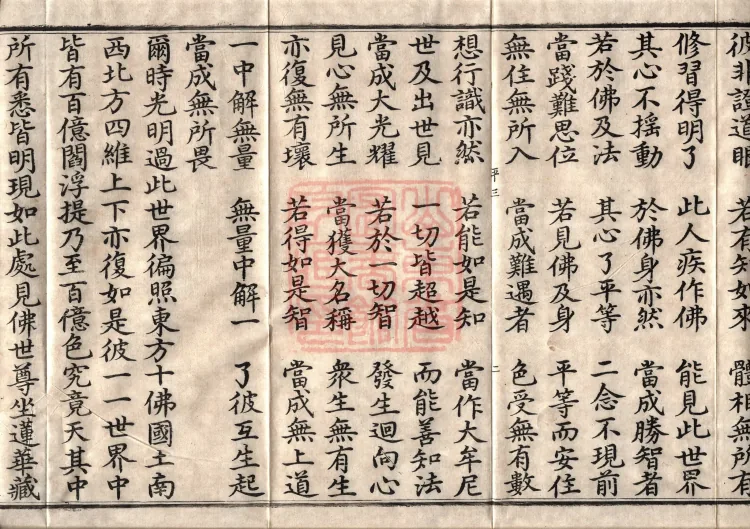 彼非證道眼 若有知如來 體相無所有
修習得明了 此人疾作佛 能見此世界
其心不搖動 於佛身亦然 當成勝智者
若於佛及法 其心了平等 二念不現前
當踐難思位 若見佛及身 平等而安住
無住無所入 當成難遇者 色受無有數
平三 二
想行識亦然 若能如是知 當作大牟尼
世及出世見 一切皆超越 而能善知法
當成大光耀 若於一切智 發生迴向心
見心無所生 當獲大名稱 衆生無有生
亦復無有壞 若得如是智 當成無上道
一中解無量 無量中解一 了彼互生起
當成無所畏
爾時光明過此世界徧照東方十佛國土南
西北方四維上下亦復如是彼一一世界中
皆有百億閻浮提乃至百億色究竟天其中
所有悉皆明現如此處見佛世尊坐蓮華藏